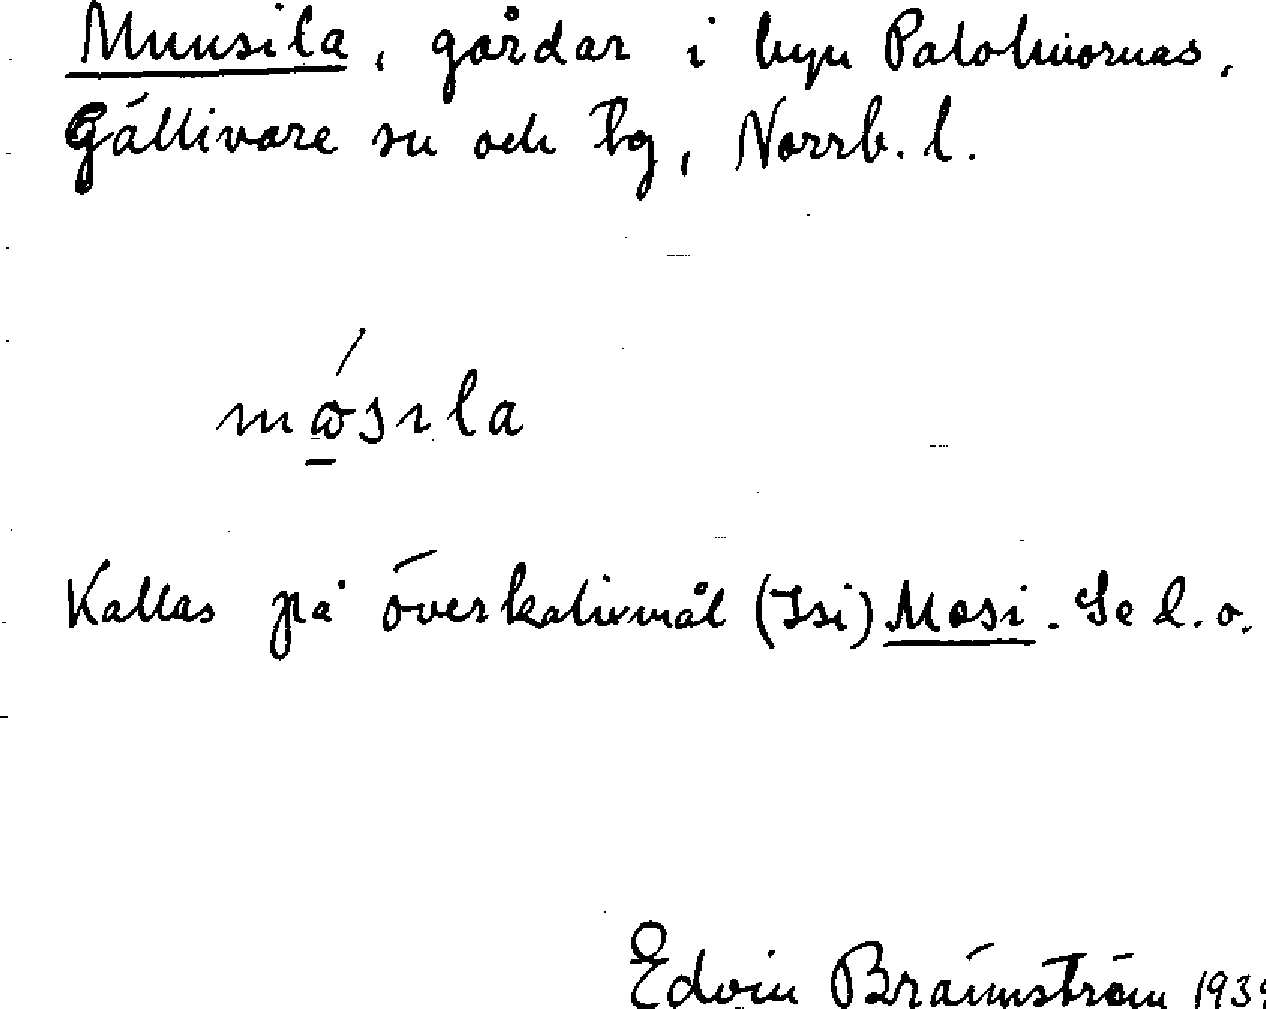 Muusila, gårdar i byn Palohuornas,
Gällivare sn och tg, Norrb. l.
Kallas på överkalixmål (Isi) Mosi. Se d. o.
Edvin Brännström 193